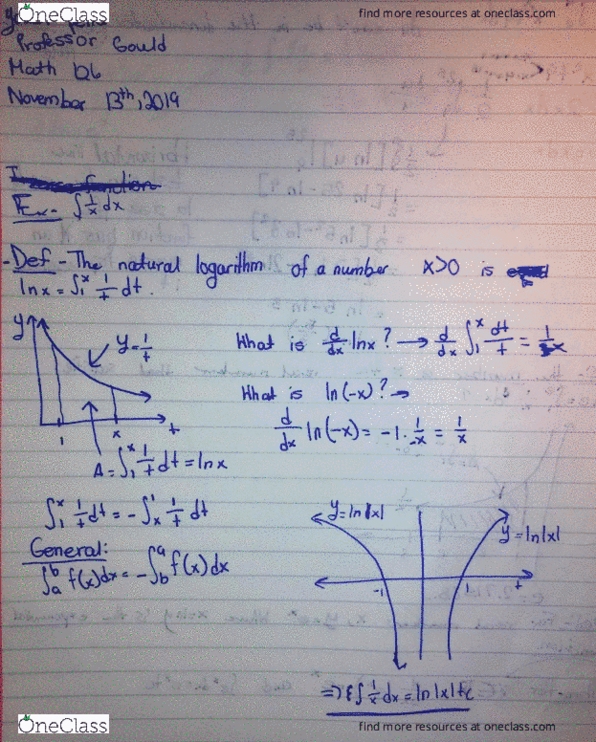 OneClass
find more resources at oneclass.com
Professor Gould
Math 126
November 13th, 2019
Ex- ∫ 1/x dx
-Def - The natural logarithm of a number x>0 is
ln x = ∫₁ˣ 1/t dt.
y
y = 1/t
1
x
t
A = ∫₁ˣ 1/t dt = ln x
What is d/dx ln x? → d/dx ∫₁ˣ dt/t = 1/x
What is ln(-x)? →
d/dx ln(-x) = -1 · 1/-x = 1/x
∫₁ˣ 1/t dt = -∫ₓ¹ 1/t dt
General:
∫ₐᵇ f(x)dx = -∫_b^a f(x)dx
y = ln|x|
y = ln|x|
-1
1
t
=> ∫ 1/x dx = ln|x| + c
OneClass
find more resources at oneclass.com